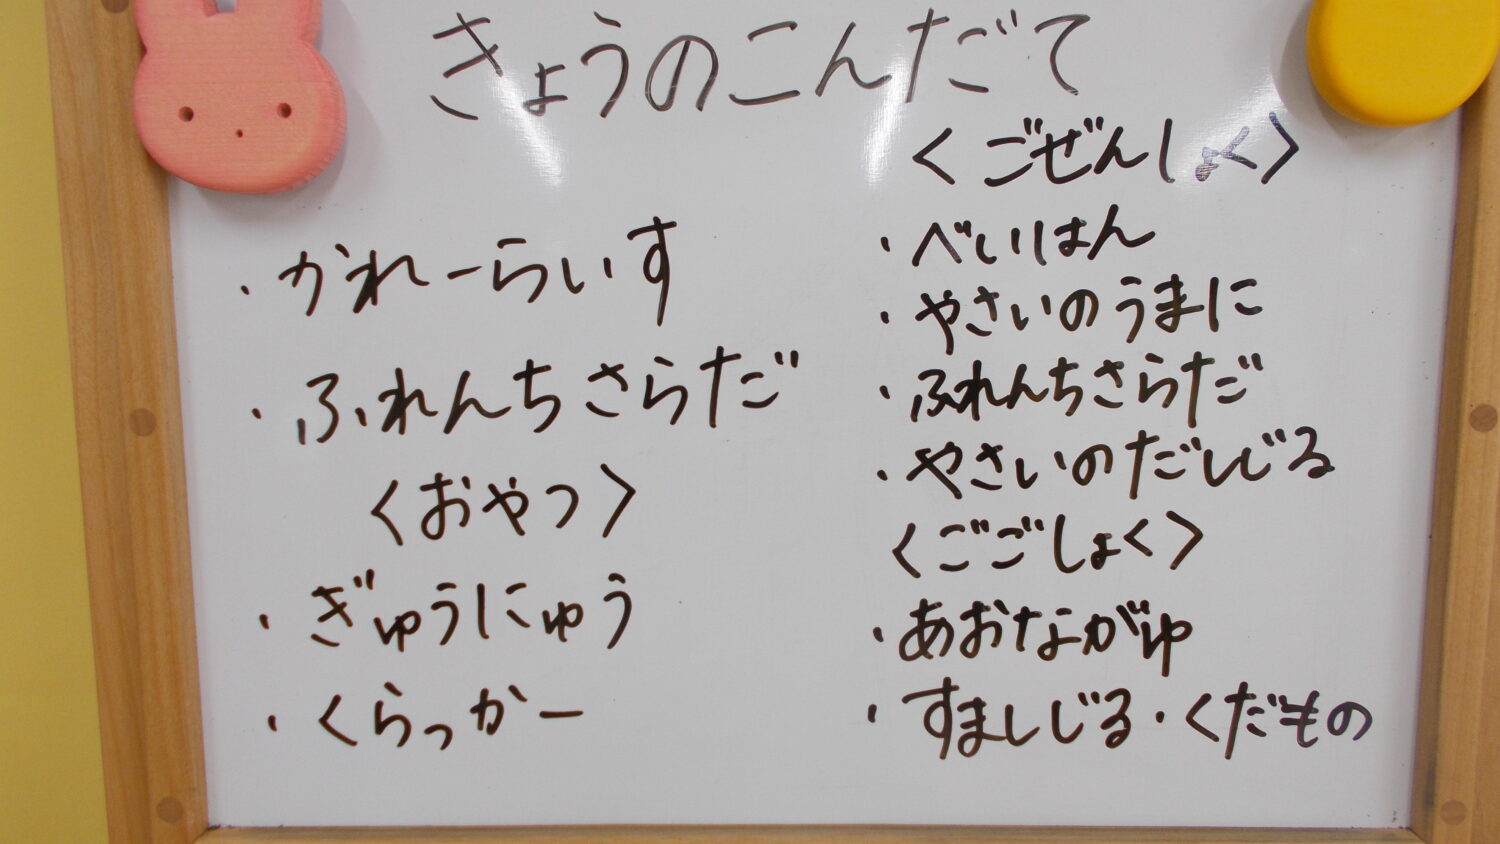 きょうのこんだて
・かれーらいす
・ふれんちさらだ
〈おやつ〉
・ぎゅうにゅう
・くらっかー
〈ごぜんしょく〉
・べいはん
・やさいのうまに
・ふれんちさらだ
・やさいのだしじる
〈ごごしょく〉
・あおながゆ
・すましじる・くだもの